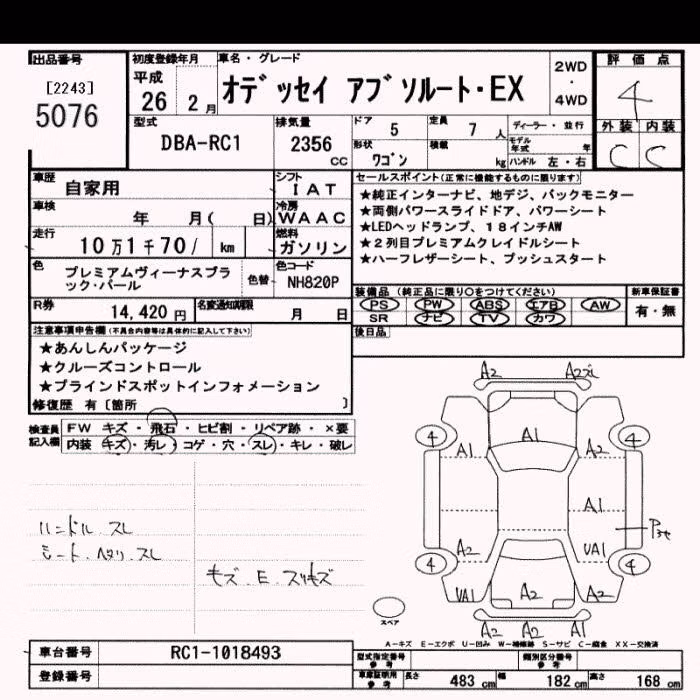 出品番号
[2243]
5076
初度登録年月
平成
26 2 月
車名・グレード
オデッセイ アブソルート・EX
2WD
・
4WD
評価点
4
外装 内装
C C
型式
DBA-RC1
排気量
2356
CC
ドア
5
定員
7 人
ディーラー・並行
形状
ワゴン
積載
kg
モデル年式 年
ハンドル 左・右
車歴
自家用
シフト
IAT
車検
年 月( 日)
冷房
WAAC
走行
10万1千70/ km
燃料
ガソリン
色
プレミアムヴィーナスブラ
ック・パール
色替
色コード
NH820P
R券
14,420 円
名変通知期限
月 日
セールスポイント(正常に機能するものに限ります)
★純正インターナビ、地デジ、バックモニター
★両側パワースライドドア、パワーシート
★LEDヘッドランプ、18インチAW
★2列目プレミアムクレイドルシート
★ハーフレザーシート、プッシュスタート
装備品(純正品に限り〇をつけてください)
PS PW ABS エアB AW
SR ナビ TV カワ
新車保証書
有・無
後日品
注意事項申告欄(不具合内容等は具体的に記入して下さい)
★あんしんパッケージ
★クルーズコントロール
★ブラインドスポットインフォメーション
修復歴 有〔箇所 〕
検査員
記入欄
FW キズ・飛石・ヒビ割・リペア跡・×要
内装 キズ・汚レ・コゲ・穴・スレ・キレ・破レ
ハンドル スレ
シート ヘタリ スレ
キズ.E.スリキズ
A2
4 4
A1 A1 A2
A1
A2 UA1
4 4
UA1 A2 A2
A2 A2 A1
スペア
A-キズ E-エクボ U-凹み W-補修跡 S-サビ C-腐食 XX-交換済
車台番号
RC1-1018493
登録番号
型式指定番号
参考
類別区分番号
参考
車庫証明用
参考
長さ 483 cm 幅 182 cm 高さ 168 cm